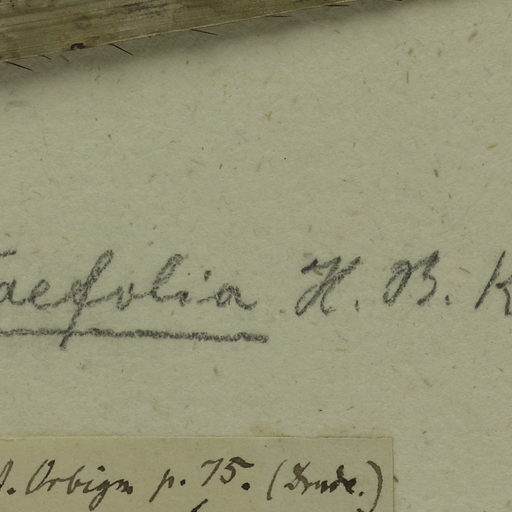 taefolia H. B. K
A. Orbign p. 75. (Drude.)